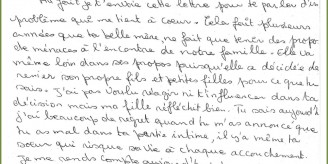 fait je t'envoie cette lettre pour te parler d'un
problème qui me tient à coeur. Cela fait plusieurs
années que ta belle mère, ne fait que tenir des propos
de menaces à l'encontre de notre famille. Elle va
même loin dans ses propos puisqu'elle a décidée de
renier son propre fils et petites filles pour ce que tu
sais. J'ai pas voulu réagir ni t'influencer dans ta
décision mais ma fille réfléchit bien. Tu sais aujourd'
j'ai beaucoup de regret quand tu m'as annoncé que
tu as mal dans ta partie intime, il y a même ta
soeur qui risque sa vie à chaque accouchement.
Je me rends compte